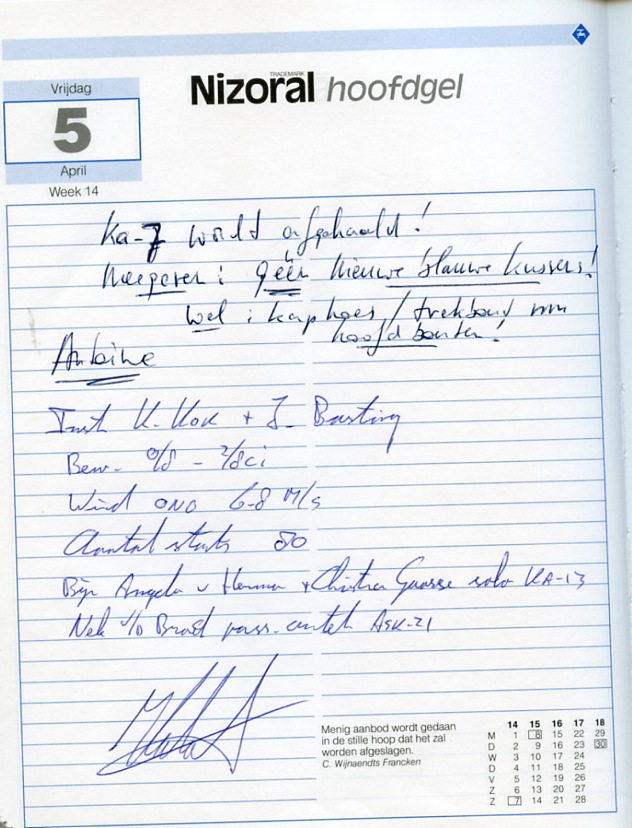 Vrijdag
5
April
Week 14
TRADEMARK
Nizoral hoofdgel
Ka-7 wordt afgehaald!
Meegeven: géén nieuwe blauwe kussens!
Wel: kaphoes / trekband van
hoofd bouten!
Antoine
Inst K. Kok + J. Basting
Bew. 0/8 - 2/8 ci
Wind ONO 6-8 M/s
Aantal starts 80
Bijz Angela v + Christian solo KA-13
Nek v/d pass. ASK-21
Menig aanbod wordt gedaan
in de stille hoop dat het zal
worden afgeslagen.
C. Wijnaendts Francken
14 15 16 17 18
M 1 8 15 22 29
D 2 9 16 23 30
W 3 10 17 24
D 4 11 18 25
V 5 12 19 26
Z 6 13 20 27
Z 7 14 21 28